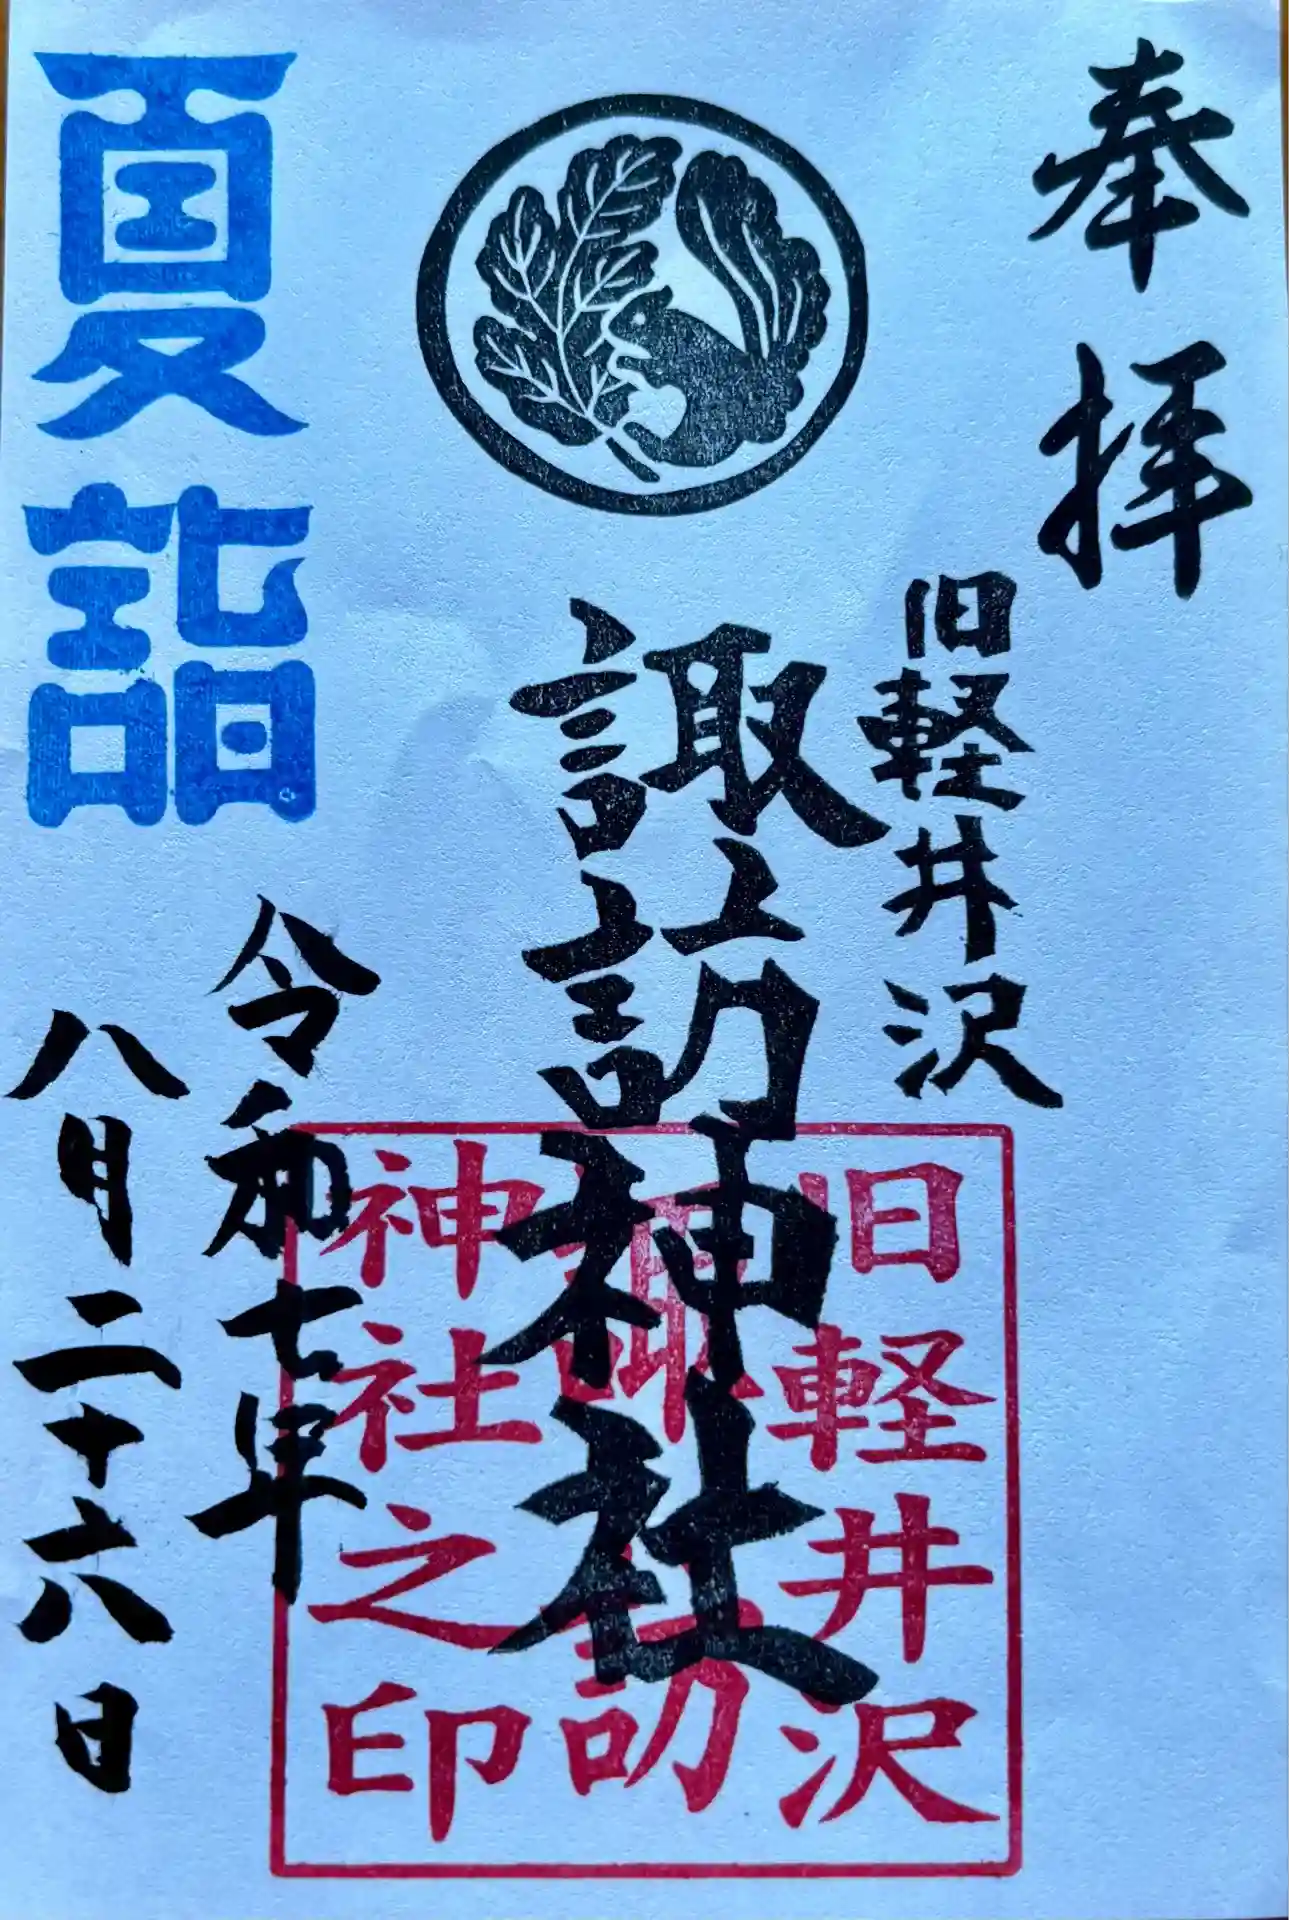 奉拝
旧軽井沢
諏訪神社
旧軽井沢
諏訪
神社之印
夏詣
令和七年
八月二十六日